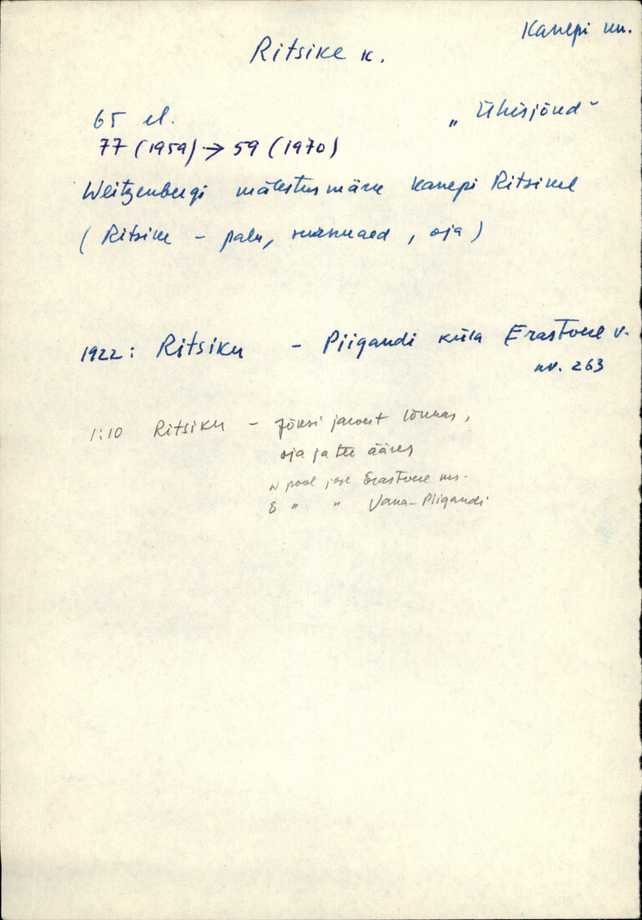 Kanepi nn.
Ritsike k.
65 el. „Ühisjõud"
77 (1959) → 59 (1970)
Weitzenbergi mälestusmärk Kanepi Ritsikel
(Ritsike - palu, surnuaed, oja)
1922: Ritsiku - Piigandi küla Erastvere v.
nr. 263
1:10 Ritsiku - Jõksi järvest lõunas,
oja ja tee ääres
W pool jääb Erastvere ms.
E " " Vana-Piigandi